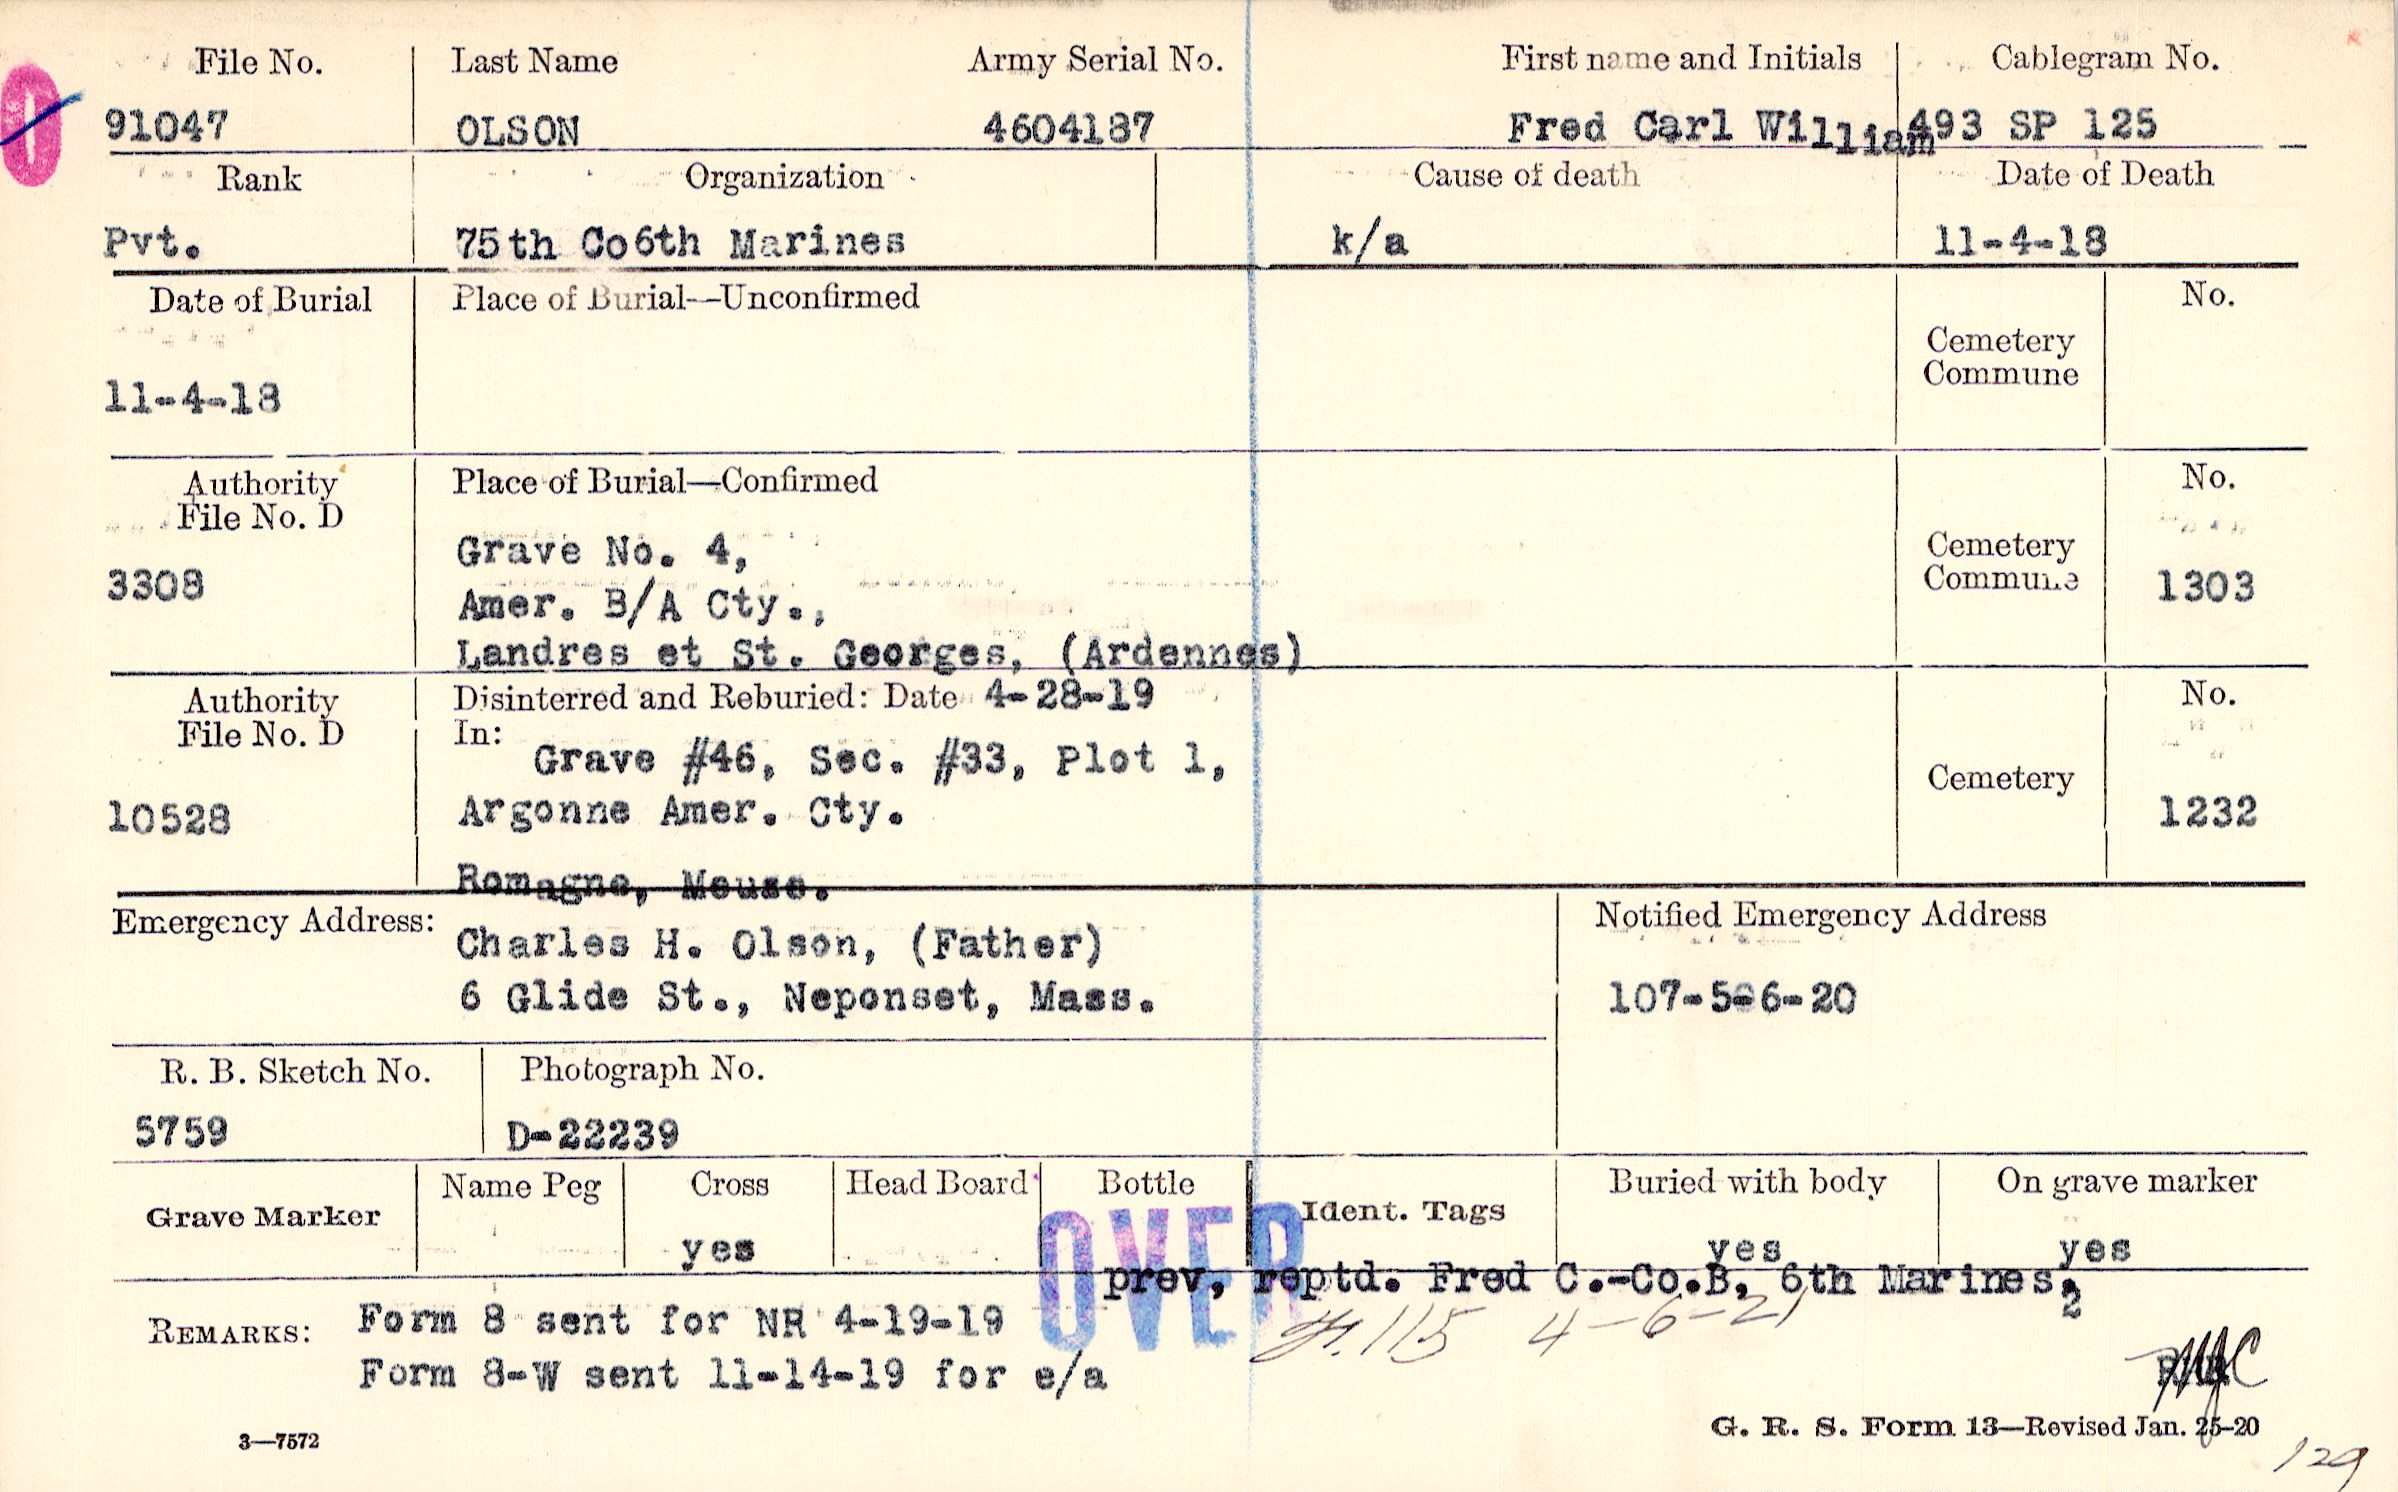 File No. Last Name Army Serial No. First name and Initials Cablegram No.
91047 OLSON 4604187 Fred Carl William 493 SP 125
Rank Organization Cause of death Date of Death
Pvt. 75th Co6th Marines k/a 11-4-18
Date of Burial Place of Burial—Unconfirmed No.
Cemetery
Commune
11-4-18
Authority Place of Burial—Confirmed No.
File No. D
Grave No. 4, Cemetery
3308 Commune 1303
Amer. B/A Cty.,
Landres et St. Georges, (Ardennes)
Authority Disinterred and Reburied: Date 4-28-19 No.
File No. D In:
Grave #46, Sec. #33, Plot 1, Cemetery
10528 Argonne Amer. Cty. 1232
Romagne, Meuse.
Emergency Address: Notified Emergency Address
Charles H. Olson, (Father)
6 Glide St., Neponset, Mass. 107-5-6-20
R. B. Sketch No. Photograph No.
5759 D-22239
Grave Marker Name Peg Cross Head Board Bottle Ident. Tags Buried with body On grave marker
yes yes yes
OVER
prev, reptd. Fred C.-Co.B, 6th Marines,
2
REMARKS: Form 8 sent for NR 4-19-19
115 4-6-21
Form 8-W sent 11-14-19 for e/a
3—7572 G. R. S. Form 13—Revised Jan. 25-20
129